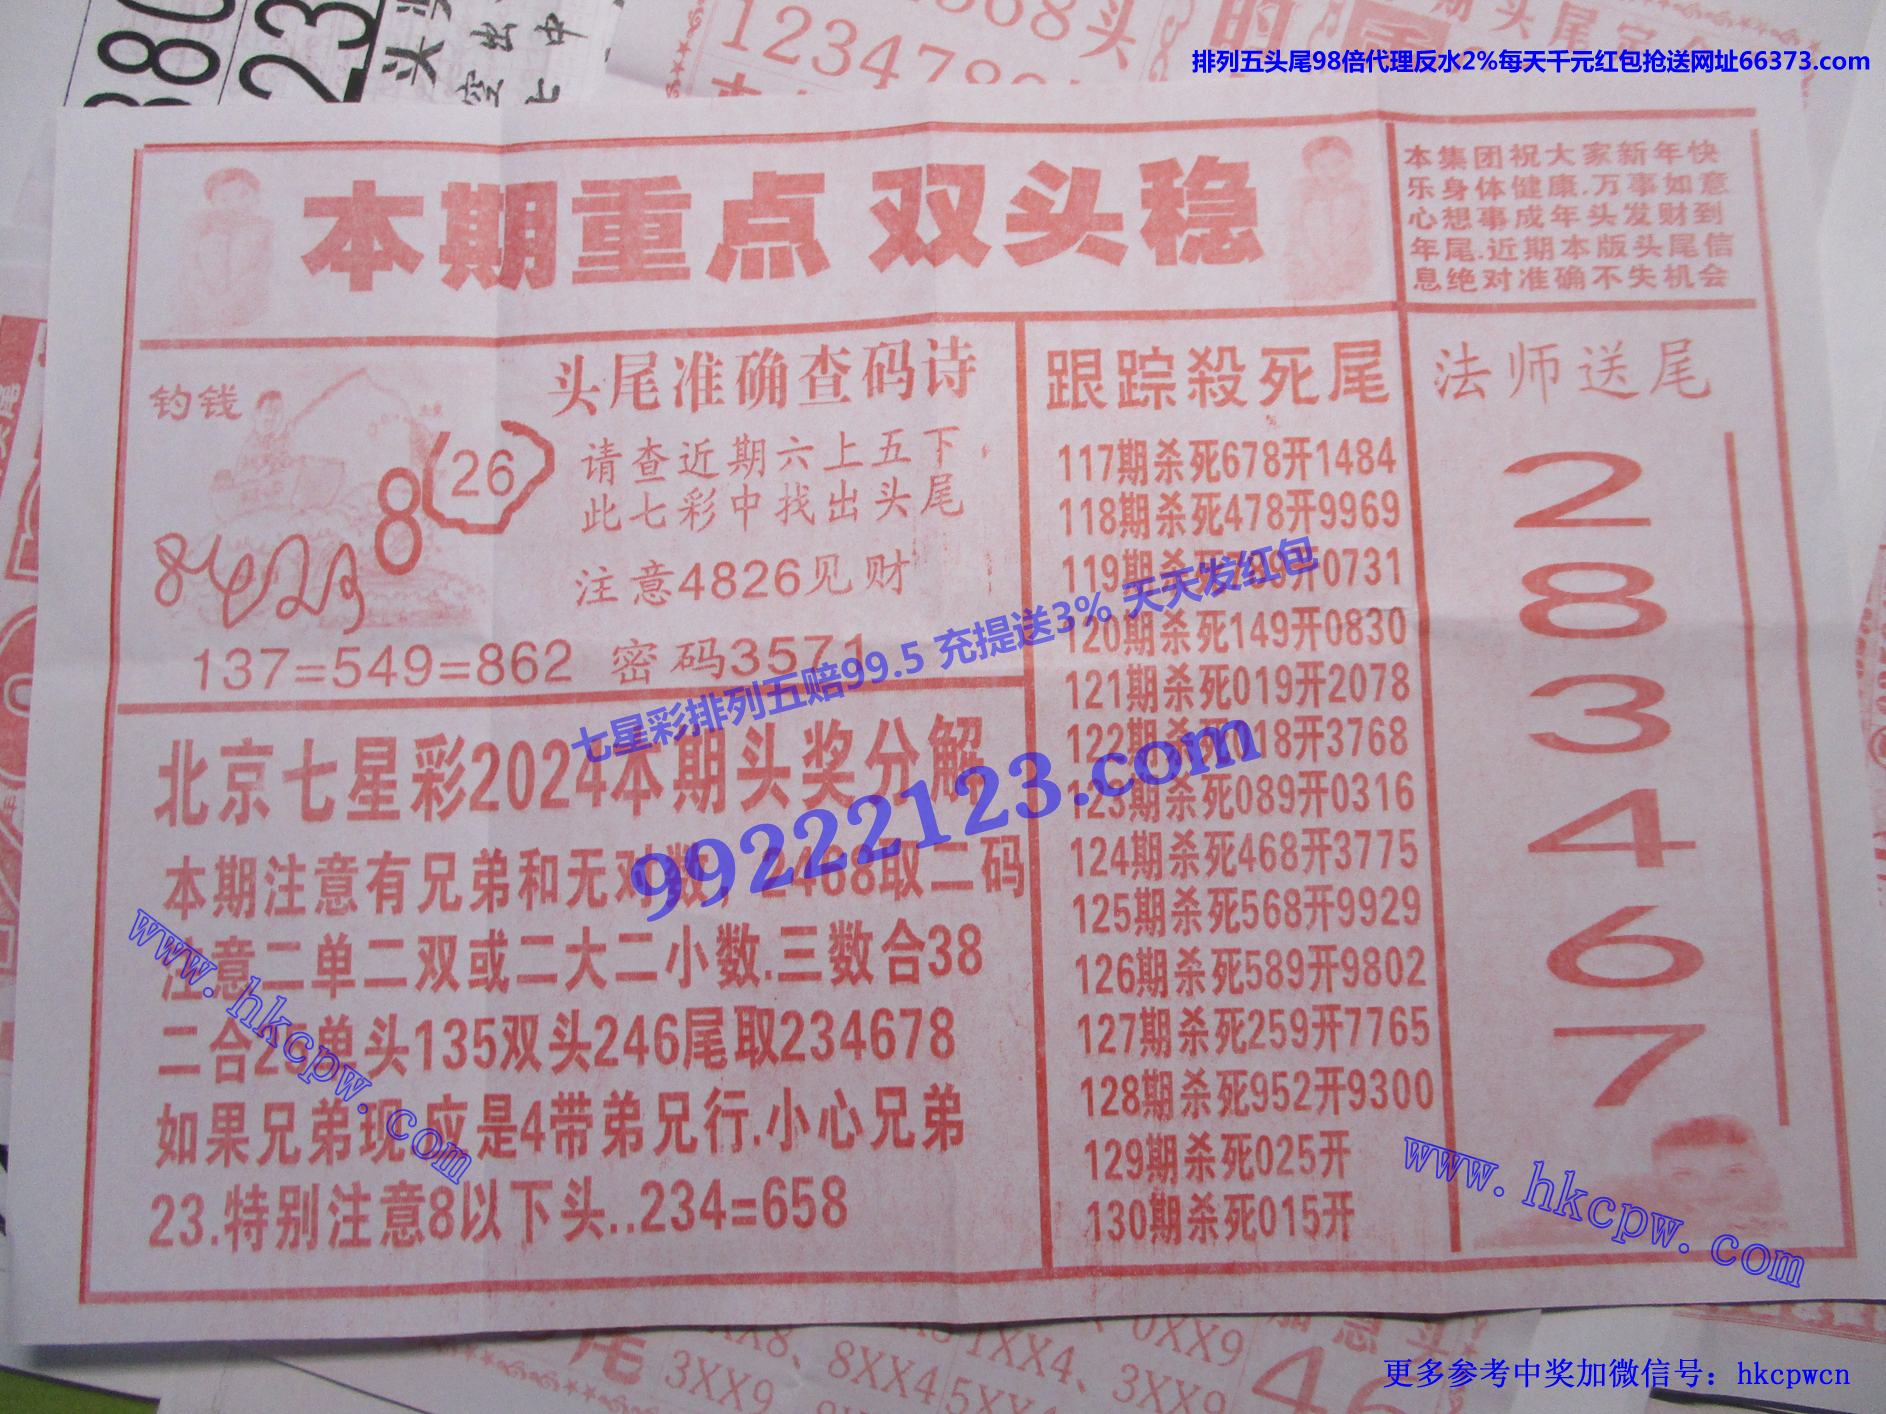 排列五头尾98倍代理反水2%每天千元红包抢送网址66373.com
本期重点 双头稳
本集团祝大家新年快
乐身体健康.万事如意
心想事成年头发财到
年尾.近期本版头尾信
息绝对准确不失机会
钓钱
8
26
头尾准确查码诗
请查近期六上五下
此七彩中找出头尾
注意4826见财
137=549=862 密码3571
北京七星彩2024本期头奖分解
本期注意有兄弟和无对数,2468取二码
注意二单二双或二大二小数.三数合38
二合25单头135双头246尾取234678
如果兄弟现.应是4带弟兄行.小心兄弟
23.特别注意8以下头..234=658
跟踪殺死尾
117期杀死678开1484
118期杀死478开9969
119期杀死开0731
120期杀死149开0830
121期杀死019开2078
122期杀死018开3768
123期杀死089开0316
124期杀死468开3775
125期杀死568开9929
126期杀死589开9802
127期杀死259开7765
128期杀死952开9300
129期杀死025开
130期杀死015开
法师送尾
2
8
3
4
6
7
七星彩排列五赔99.5 充提送3% 天天发红包
99222123.com
www.hkcpw.com
www.hkcpw.com
3XX9
8XX4
5XX
1XX4、3XX9
0XX9
更多参考中奖加微信号：hkcpwcn